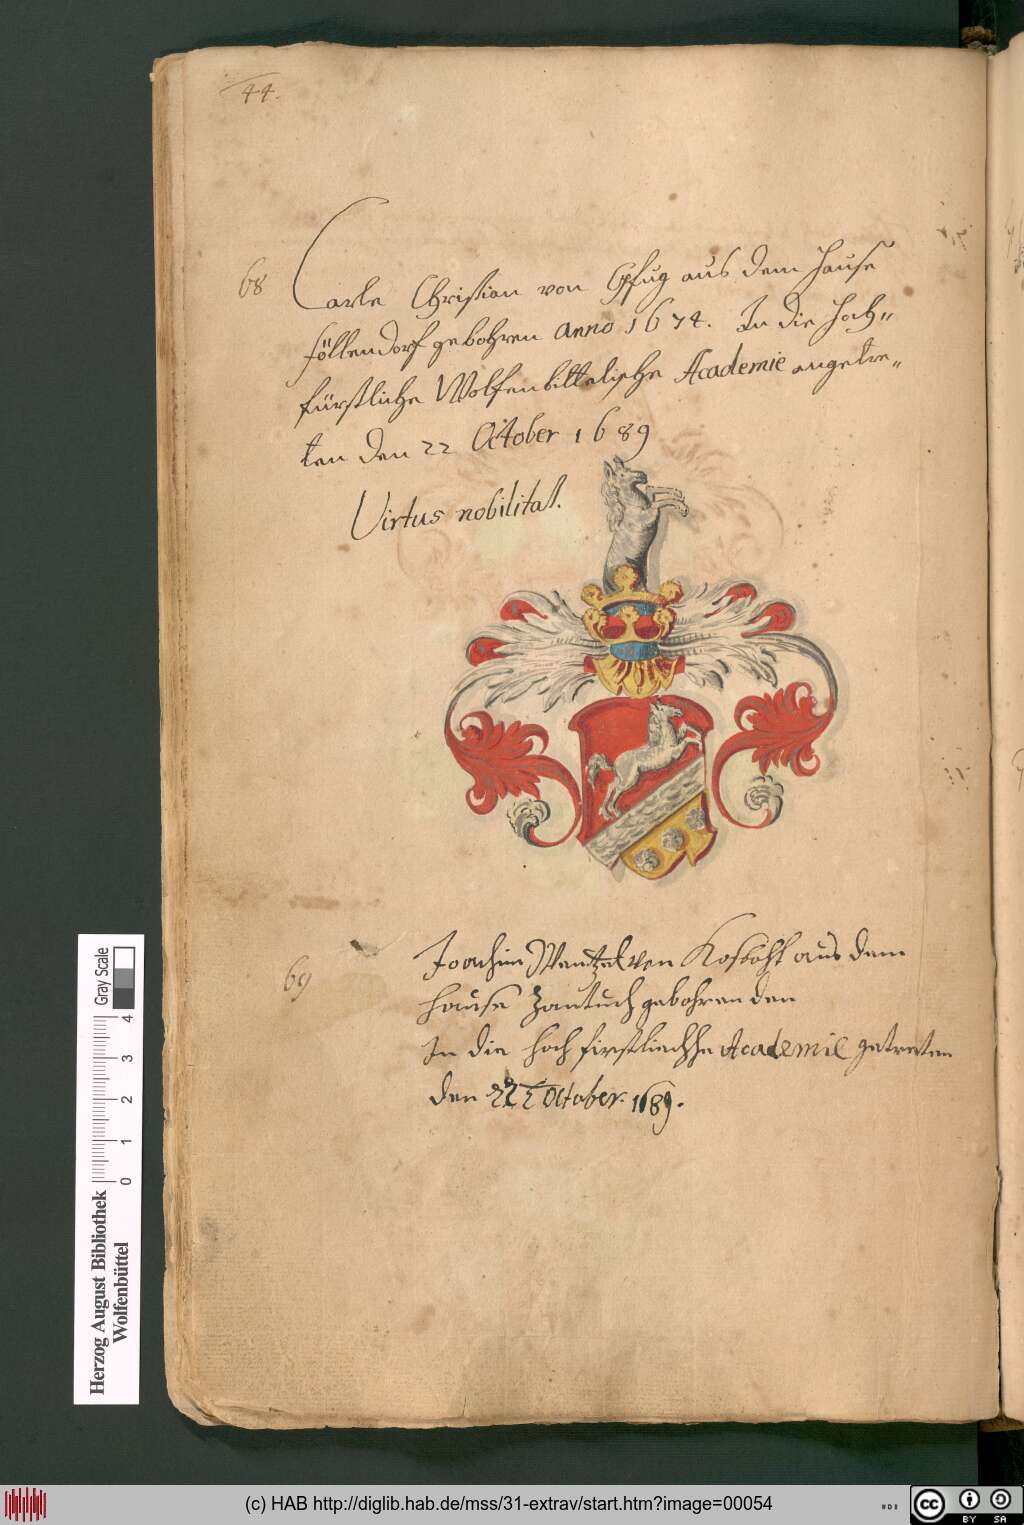 44.
68
Carle Christian von Pfug aus dem Hause
föllendorf gebohren Anno 1674. In die Hoch=
fürstliche Wolfenbittelische Academie angetre=
ten den 22 October 1689
Virtus nobilitat.
69
Joachim Wentzel von aus dem
Hause gebohren den
In die hoch firstliechhe Academie getretten
den October. 1689.
Herzog August Bibliothek
Wolfenbüttel
0 1 2 3 4
Gray Scale
(c) HAB http://diglib.hab.de/mss/31-extrav/start.htm?image=00054
cc BY SA